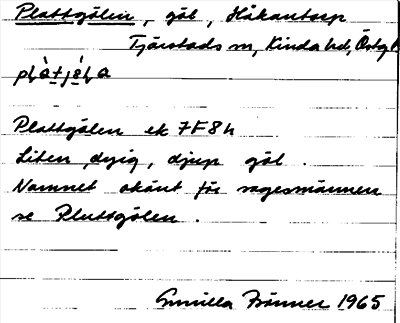 Plattgölen, göl, Håkantorp
Tjärstads sn, Kinda hd, Östgl.
Plattgölen ek 7F8h
Liten, dyig, djup göl.
Namnet okänt för sagesmännen
se Pluttgölen.
Gunilla Brönner 1965